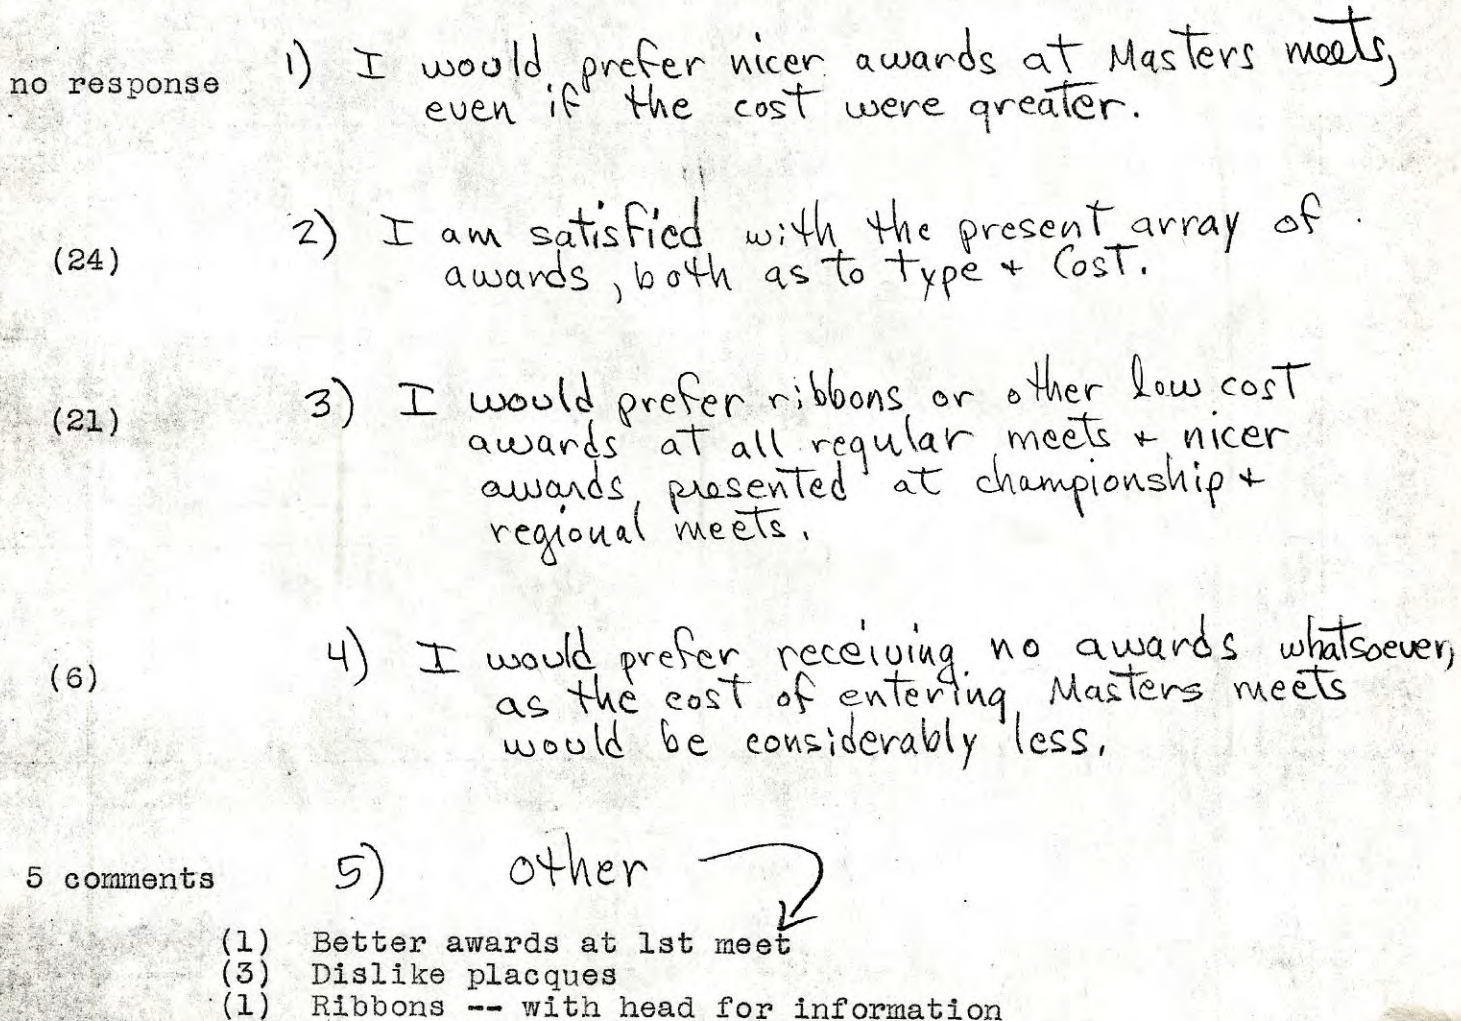 no response 1) I would prefer nicer awards at Masters meets,
even if the cost were greater.
(24) 2) I am satisfied with the present array of
awards, both as to type + Cost.
(21) 3) I would prefer ribbons or other low cost
awards at all regular meets + nicer
awards presented at championship +
regional meets.
(6) 4) I would prefer receiving no awards whatsoever,
as the cost of entering Masters meets
would be considerably less.
5 comments 5) other
(1) Better awards at 1st meet
(3) Dislike placques
(1) Ribbons -- with head for information